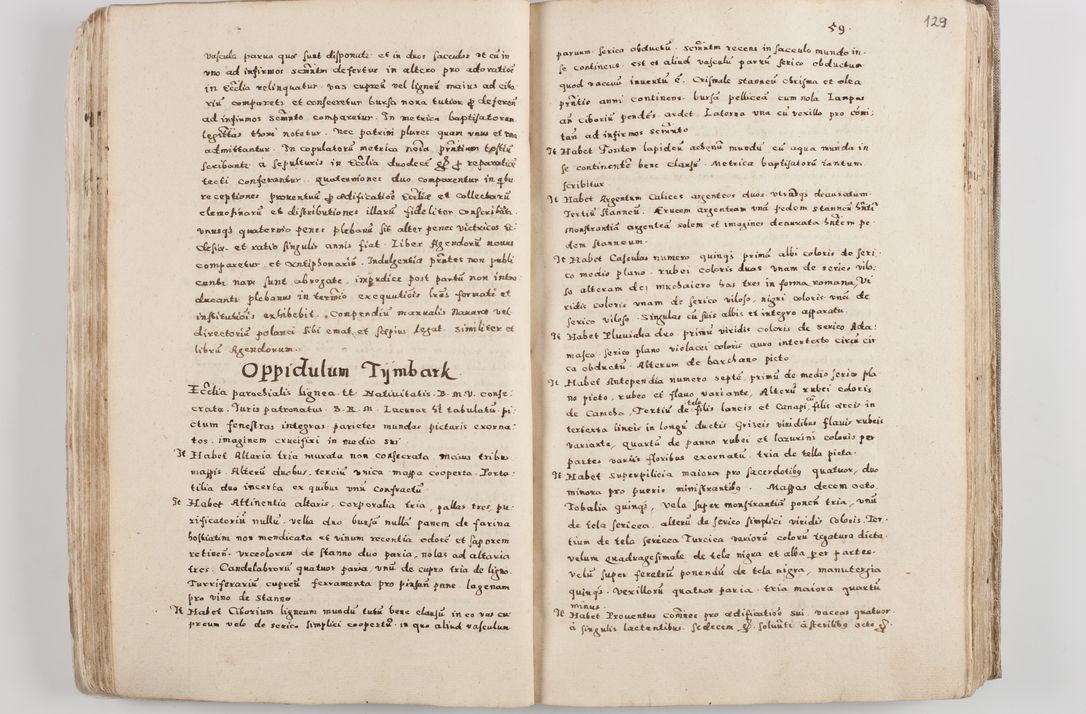 vascula parva quo sunt disponatr. et in duos sacculos vt cũ in
vno ad infirmos scm̃ntm defertur in altero pro adoratiõe
in Ecclia relinquatur. vas cupreũ vel ligneũ maius ad cibo
riũ comparetr et consecretur bursa nova tutior p deferen
ad infirmos scm̃nto comparetur. In metrica baptisatorum
legittãs thori notetur. Nec patrini plures quam vnus et vna
admittantur. In copulatorũ metrica noĩa pñtium testiũ
scribantr à sepulturis in Ecclia duodecĩ gr p reparatiõe
tecti conferantur. quaterniones duo comparentur in qbus
receptiones proventuũ p ædificatiõe Eccliæ et collectarũ
elemosinarũ et distributiones illarũ fideliter conscribãtr.
vnusqs quaternio penes plebanũ sit alter penes victricos Ec
clesiæ. et ratio singulis annis fiat. Liber Agendorũ novus
comparetur et Antiphonariũ. Indulgentiæ pñtes non publi
centr nam sunt abrogatæ. impudicæ post partũ non intro
ducantr plebanus in termĩo executiõis lr̃as formatæ et
institutiõis exhibebit. Compendiũ manualis Navarri vel
directoriũ polanci sibi emat et sæpius legat. similiter et
librũ Agendorum.
Oppidulum Tÿmbark
Ecclia parochialis lignea tt Nativitatis B. M. V. conse-
crata. Iuris patronatus S. R. M. Lacunar seu tabulatũ pi-
ctum fenestras integras parietes mundos picturis exorna-
tos. imaginem crucifixi in medio sui
It Habet Altaria tria murata non consecrata maius tribus
mappis. Alterũ duobus. terciũ vnica mappa cooperta. Porta-
tilia duo incerta ex quibus vnũ confractũ
It Habet Attinentia altaris, corporalia tria, pallas tres, pu-
rificatoriũ nullũ. vella duo bursã nullã panem de farina
hostiarum non mendicata et vinum recentia odorẽ et saporem
retinẽt. vrceolorum de stanno duo paria, nolas ad altaria
tres. Candelabrorũ quatuor paria, vnũ de cupro tria de ligno.
Turriferariũ cupreũ ferramenta pro pane lagenam
pro vino de stanno
It Habet Ciborium ligneum mundũ tutũ bene clausũ in eo vas cu-
preum velo de serico simplici coopertũ. in quo aliud vasculum
59.
129
parvum serico obductũ. scm̃ntm recens in sacculo mundo in
se continens. est et aliud vasculũ parvũ serico obductum
quod vacuũ inventũ ẽ. Crismale stanneũ chrisma et olea
pñtis anni continens. bursã pelliceã cum nola Lampas
añ Ciboriũ pendẽs ardet. Laterna vna cũ vexillo pro comi-
tañ ad infirmos scm̃nto
It Habet Fontem lapideũ aheñũ mundũ cũ aqua munda in
se continentẽ bene clausũ. Metrica baptisatorũ tantum
scribitur
It Habet Argentum Calices argenteos duos. vtrũqs deauratum.
Tertiũ stanneũ. Crucem argenteam vnã pedem stanneũ hñtẽ
monstrantiã argenteã solem et imagines deaurata hñtem pe-
dem stanneum.
It Habet Casulas numero quinqs primã albi coloris de seri-
co medio plano. rubei coloris duas vnam de serico vilo-
so alteram de muchaiero has tres in forma romana, Vi-
ridis coloris vnam de serico viloso, nigri coloris vnã de
serico viloso. Singulas cũ suis albis et integro apparatu
It Habet Pluvialia duo primũ viridis coloris de serico Ada-
masco. serico plano violacei coloris auro intertexto circũ cir-
ca obductũ. Alterum de barchano picto
It Habet Antependia numero septẽ, primũ de medio serico pla
no picto, rubeo et flavo variante, Alterũ rubei coloris
de Camcha, Tertiũ de tela filis laneis et Canapi, cũ filis æreis in
tertexta lineis in longũ ductis Griseis viridibus flavis rubeis
variante, quartũ de panno rubei et lazurini coloris per
partes variis floribus exornatũ. tria de tella picta.
It Habet superpilicia maiora pro sacerdotibq quatuor, duo
minora pro pueris ministrantibq. Mappas decem octo.
Tobalia quinqs, Vela super monstrantiã ponen̄ tria, vnũ
de tela sericea. alterũ de serico simplici viridis coloris. Ter-
tium de tela sericea Turcica variorũ colorũ tegatura dicta.
velum quadragesimale de tela nigra et alba per partes.
Velũ super feretrũ ponendũ de tela nigra, manutergia
quinqs. Vexillorũ quatuor paria. tria maiora quartũ
minus.
It Habet Proventus com̃nes pro ædificatiõe sui. vaccas quatuor
à singulis lactentibus. sedecem gr. solvũtr à sterilibq octo gr.